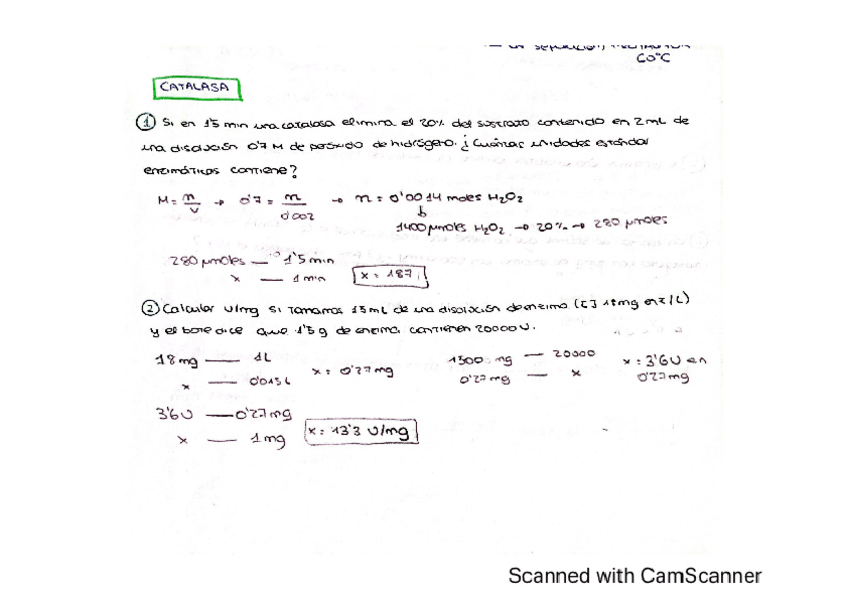 60°C
CATALASA
① Si en 1'5 min una catalasa elimina el 20% del sustrato contenido en 2mL de
una disolución 0'7 M de peróxido de hidrógeno. ¿Cuántas unidades estándar
enzimáticas contiene?
M = n/V → 0'7 = n/0'002 → n = 0'0014 moles H₂O₂
↓
1400 μmoles H₂O₂ → 20% → 280 μmoles
280 μmoles — 1'5 min
x — 1 min x = 187
② Calcular U/mg si tomamos 15 mL de una disolución de enzima ([ ] 18mg enz/L)
y el bote dice que 1'5 g de enzima contienen 20000 U.
18 mg — 1L
x — 0'015L x = 0'27 mg
1500 mg — 20000
0'27 mg — x
x = 3'6 U en
0'27 mg
3'6 U — 0'27 mg
x — 1 mg x = 13'3 U/mg
Scanned with CamScanner